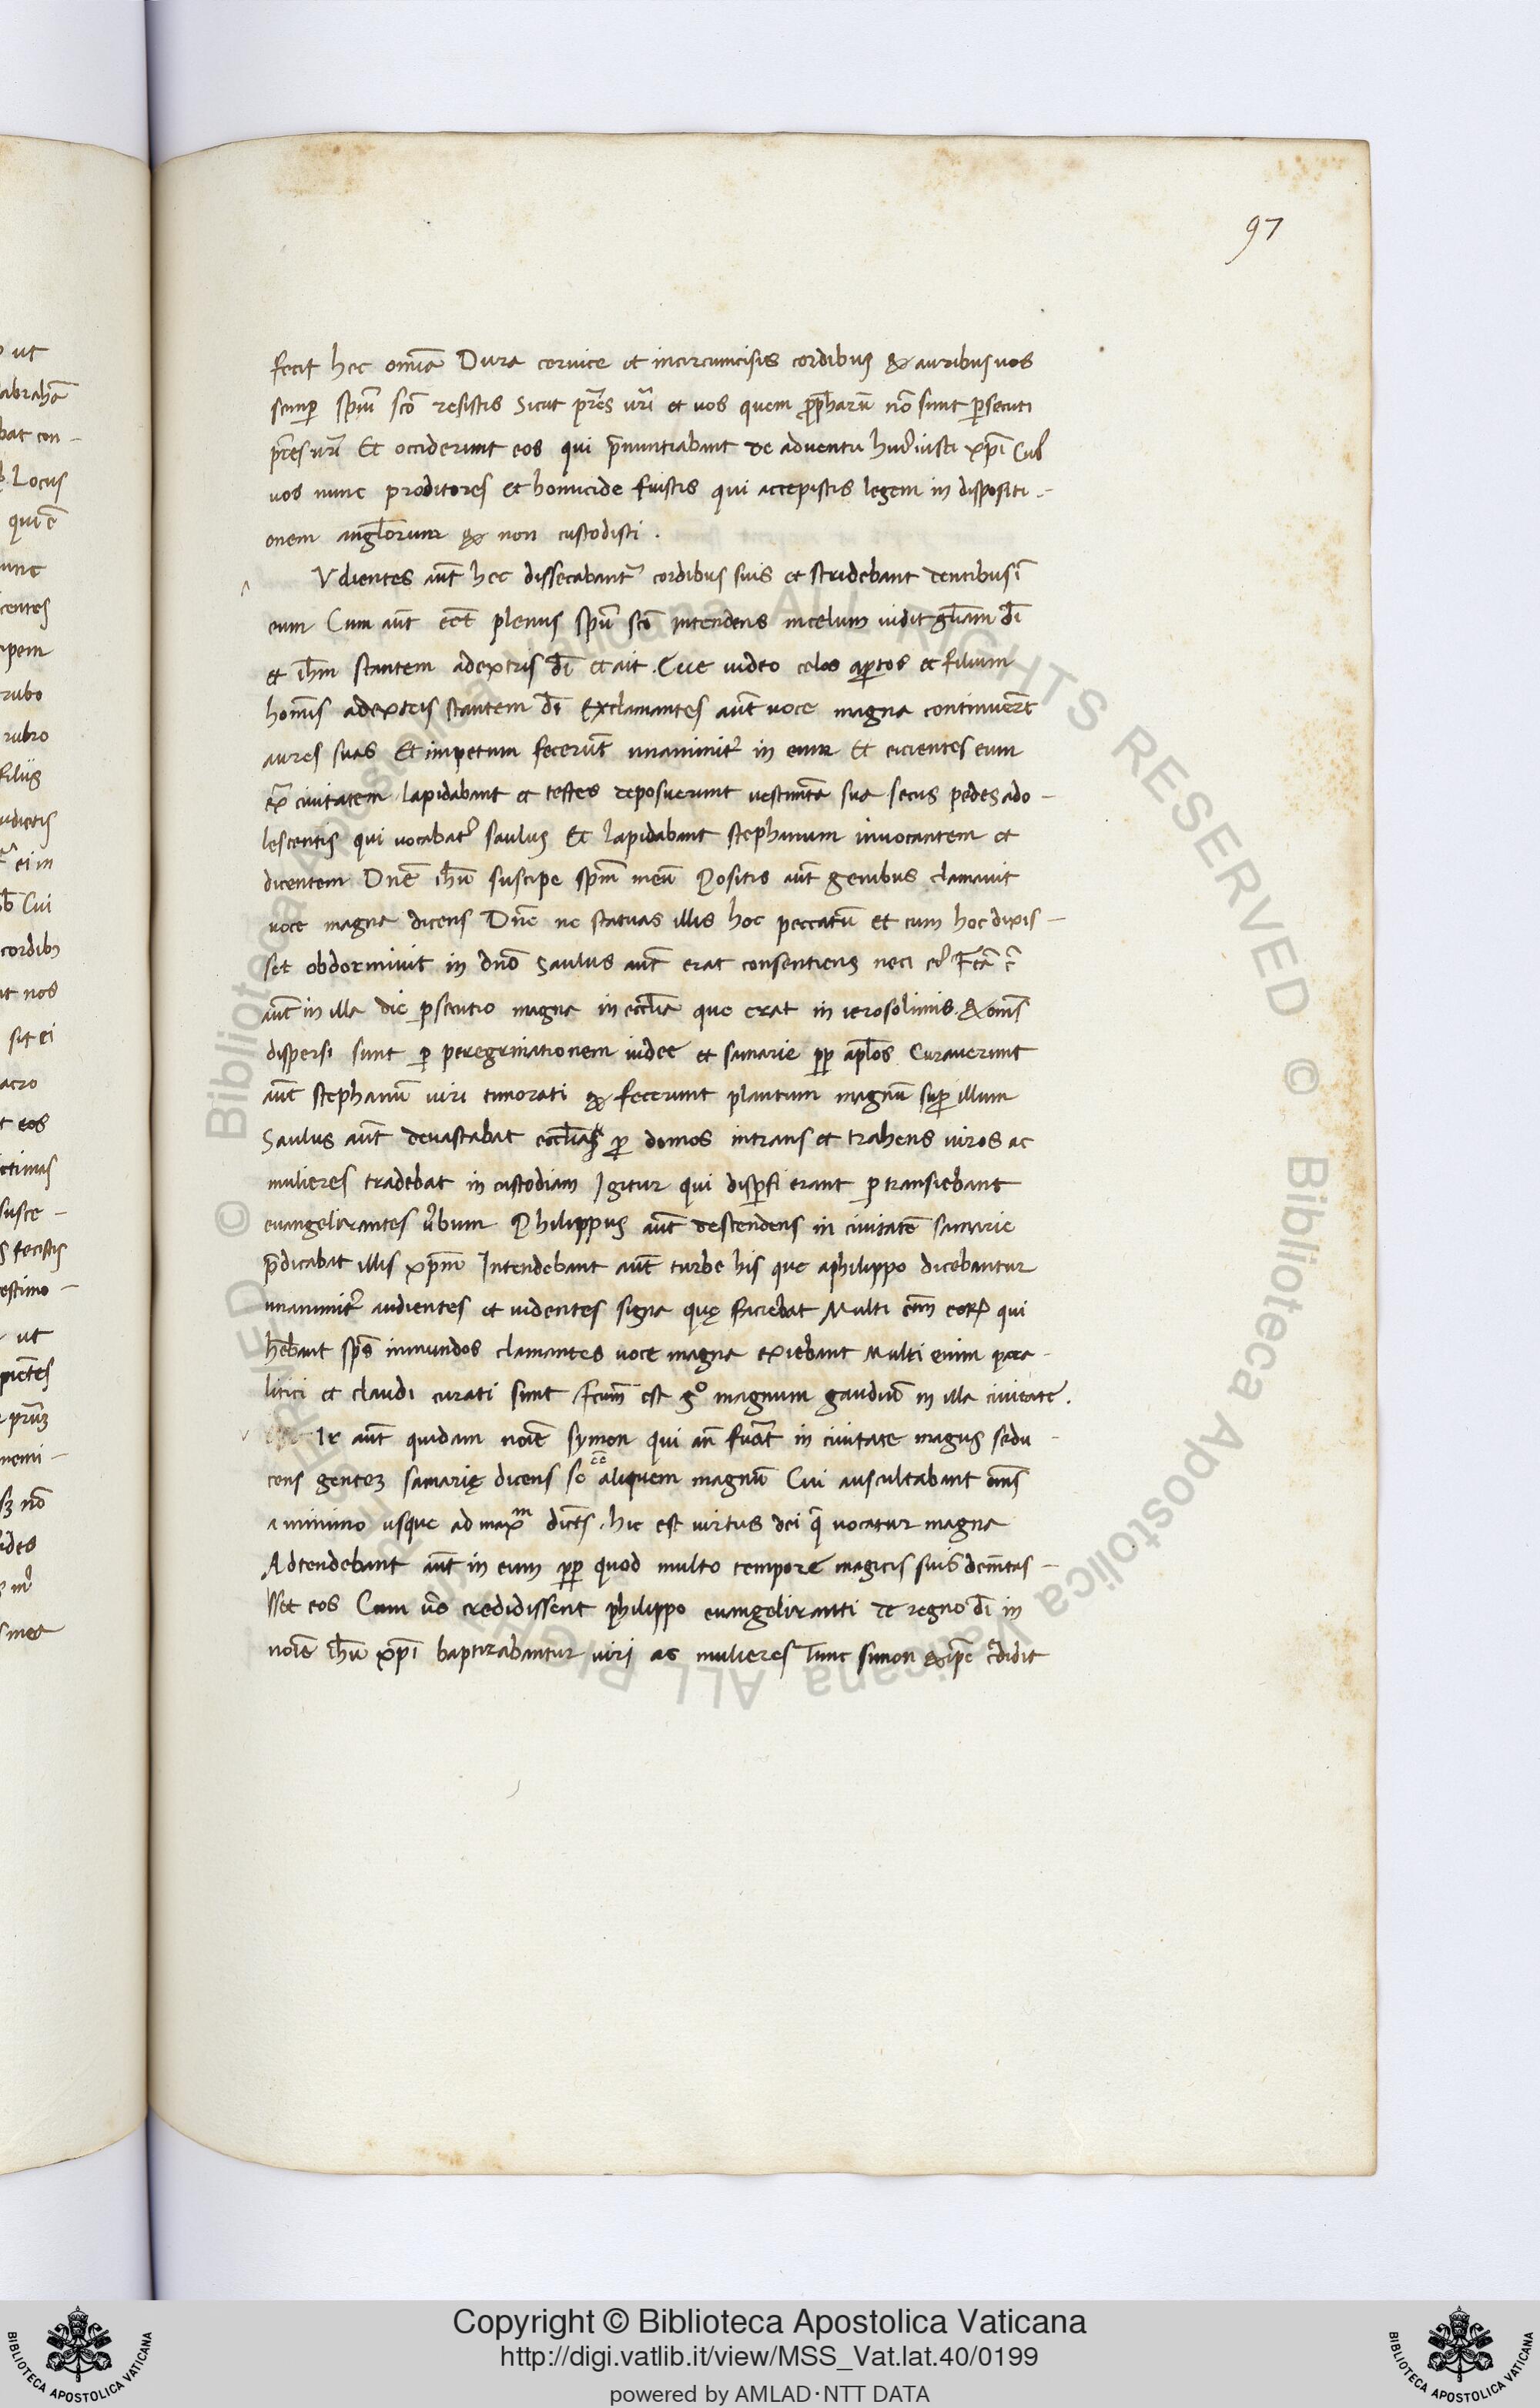 97
fecit hec om̄ia Dura ceruice et incircumcisis cordibus & auribus uos
semp̄ sp̄iu sc̄o resistis Sicut pr̄es ur̄i et uos quem p̄phetarū nō sunt p̄secuti
pr̄es ur̄i Et occiderunt eos qui p̄nuntiabant de aduentu hui᾽ iusti xp̄i Cui᾽
uos nunc proditores et homicide fuistis qui accepistis legem in dispositi-
onem angl̄orum & non custodisti.
Udientes aut̄ hec dissecabant᾽ cordibus suis et stridebant dentibus ī
eum Cum aut̄ eēt plenus sp̄u sc̄o intendens in celum uidit gl̄iam dī
et ih̄m stantem adextris dī et ait. Ece uideo celos ap̄tos et filium
hom̄is adextris stantem dī Exclamantes aut̄ uoce magna continuer̄t
aures suas Et impetum fecerūt unanimit᾽ in eum Et eicientes eum
ex̄ ciuitatem lapidabant et testes deposuerunt uestim̄ta sua secus pedes ado-
lescentis qui uocabat᾽ saulus Et lapidabant stephanum inuocantem et
dicentem Dn̄e ih̄u suscipe sp̄m meū Positis aut̄ genibus clamauit
uoce magna dicens Dn̄e ne statuas illis hoc peccatū et cum hoc dixis-
set obdormiuit in dn̄o Saulus aut̄ erat consentiens neci ei᾽ Fc̄a ē
aut̄ in illa die p̄secutio magna in eccl̄ia que erat in ierosolimis. & om̄s
dispersi sunt p̄ peregrinationem iudee et samarie pp̄ apl̄os Curauerunt
aut̄ stephanū uiri timorati & fecerunt planctum magnū sup̄ illum
Saulus aut̄ deuastabat eccl̄ias p̄ domos intrans et trahens uiros ac
mulieres tradebat in custodiam Igitur qui disp̄si erant p̄transiebant
euangelizantes u᾽bum Philippus aut̄ descendens in ciuitatē samarie
p̄dicabat illis xp̄m Intendebant aut̄ turbe his que aphilippo dicebantur
unanimit᾽ audientes et uidentes signa quę faciebat Multi em̄ eoꝝ qui
heb̄ant sp̄s inmundos clamantes uoce magna exiebant Multi enim para-
litici et claudi curati sunt fc̄um est gͦ magnum gaudiū in illa ciuitate.
Ir aut̄ quidam noīe symon qui an̄ fuāt in ciuitate magus sedu-
cens gentez samarię dicens se eē aliquem magnū Cui auscultabant om̄s
a minimo usque ad maxᵐ dic̄tes. hic est uirtus dei q̄ uocatur magna
Adtendebant aut̄ in eum pp̄ quod multo tempore magicis suis dem̄tas-
sset eos Cum ūo credidissent philippo euangelizanti de regno dī in
noīe ih̄u xp̄i baptizabantur uiri ac mulieres Tunc simon & ip̄e c᾽didit
Copyright © Biblioteca Apostolica Vaticana
http://digi.vatlib.it/view/MSS_Vat.lat.40/0199
powered by AMLAD·NTT DATA